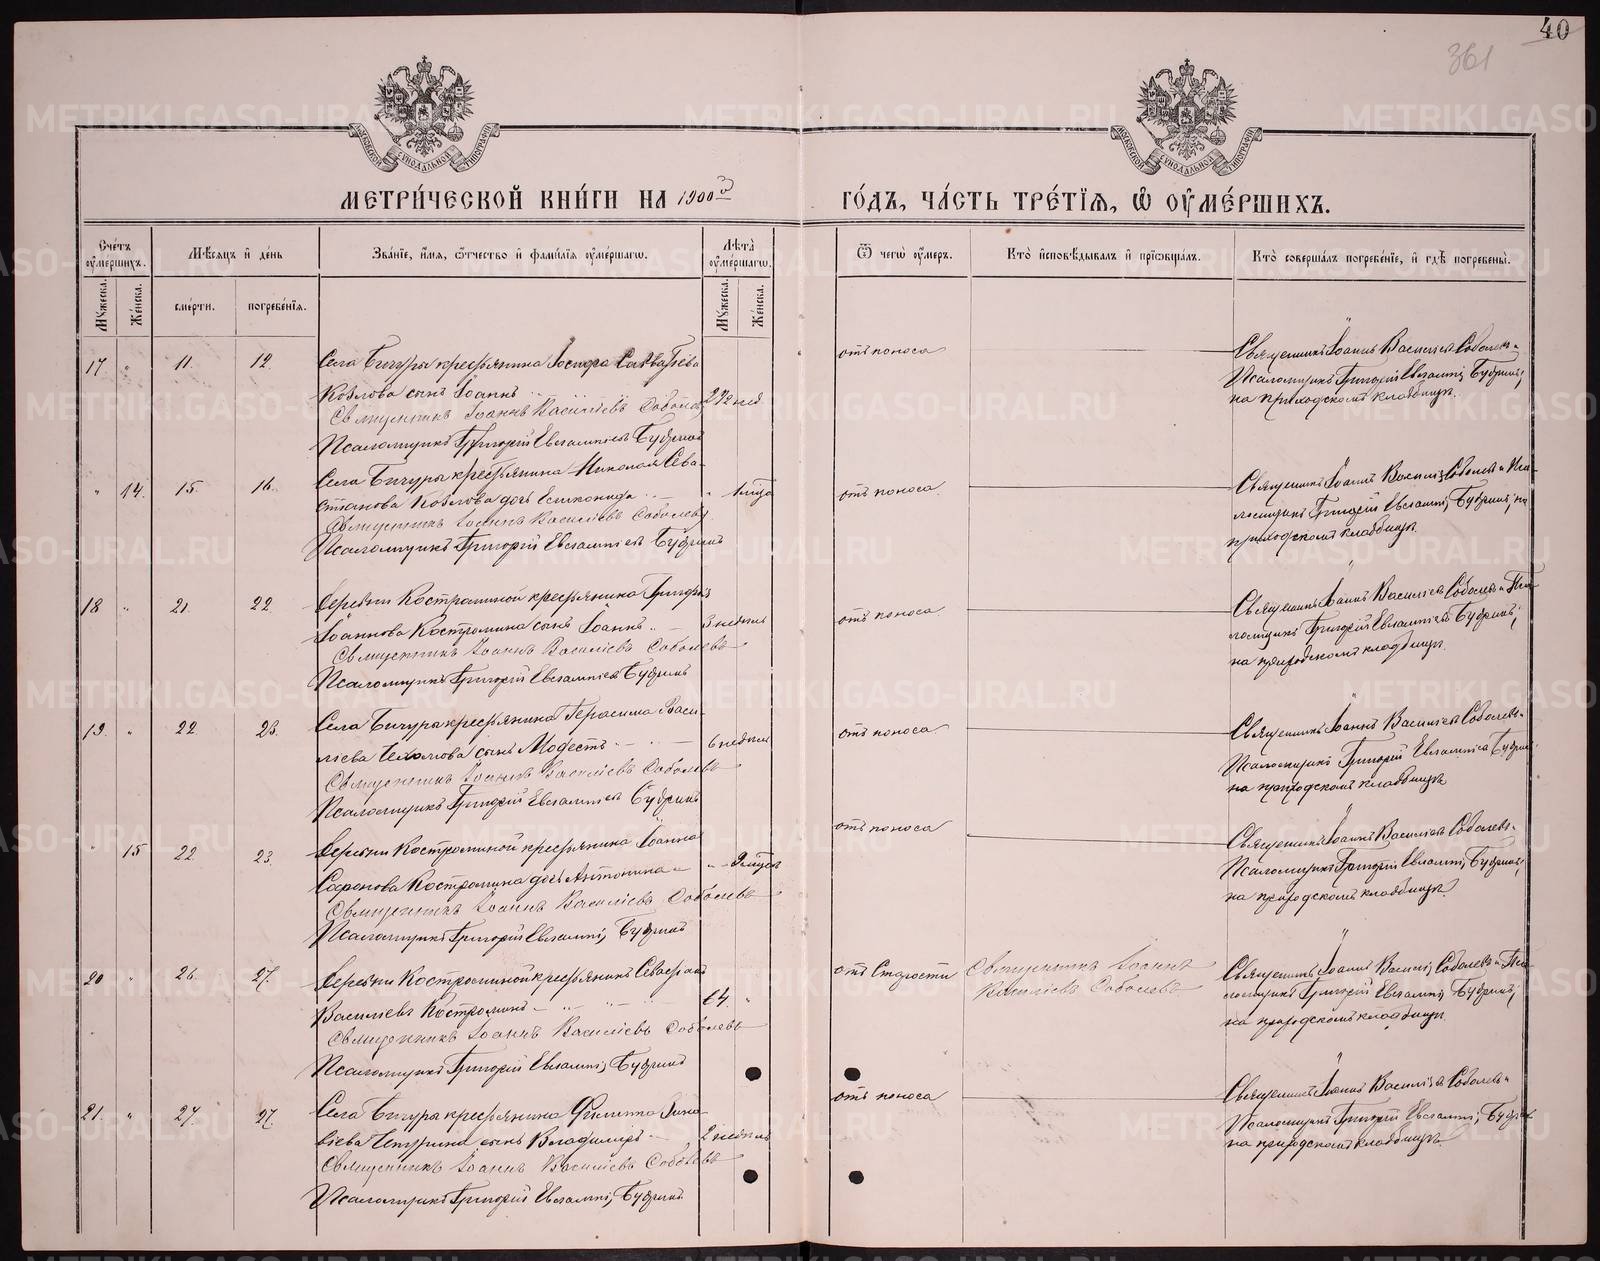 40
361
МЕТРИ́ЧЕСКОЙ КНИ́ГИ НА 1900й ГО́ДЪ, ЧА́СТЬ ТРЕ́ТІѦ, Ѡ ОУ҆МЕ́РШИХЪ.
Сче́тъ оу҆ме́ршихъ.
Мѣ́сяцъ и҆ де́нь
Зва́ніе, и҆́мѧ, ѻ҆́тчество и҆ фами́лїѧ оу҆ме́ршагѡ.
Лѣ́та оу҆ме́ршагѡ.
Ѿ чегѡ̀ оу҆́меръ.
Кто̀ и҆сповѣ́дывалъ и҆ прїѡбща́лъ.
Кто̀ соверша́лъ погребе́нїе, и҆ гдѣ̀ погребены̀.
Мꙋ́жеска.
Же́нска.
сме́рти.
погребе́нїѧ.
Мꙋ́жеска.
Же́нска.
17 " 11. 12. Села Бичуры крестьянина
Козлова сынъ Іоаннъ 2 1/2 нед.
Священникъ Іоаннъ Василіевъ Соболевъ
Псаломщикъ Григорій Евгампіевъ Будринъ
отъ поноса
Священникъ Іоаннъ Василіевъ Соболевъ и
Псаломщикъ Григорій Евгампіев Будринъ,
на приходскомъ кладбищѣ.
" 14. 15. 16. Села Бичуры крестьянина Николая Сева-
стьянова Козлова дочь " 1 мѣс
Священникъ Іоаннъ Василіевъ Соболевъ
Псаломщикъ Григорій Евгампіевъ Будринъ
отъ поноса
Священникъ Іоаннъ Василіев Соболевъ и Пса-
ломщикъ Григорій Евгампіев Будринъ, на
приходскомъ кладбищѣ.
18 " 21. 22. Деревни Костроминой крестьянина Григорія
Іоаннова Костромина сынъ Іоаннъ 3 недѣли
Священникъ Іоаннъ Василіевъ Соболевъ
Псаломщикъ Григорій Евгампіевъ Будринъ
отъ поноса
Священникъ Іоаннъ Василіевъ Соболевъ и Пса-
ломщикъ Григорій Евгампіевъ Будринъ,
на приходскомъ кладбищѣ.
19. " 22. 23. Села Бичуры крестьянина Герасима Васи-
ліева сынъ Модестъ 6 недѣль
Священникъ Іоаннъ Василіевъ Соболевъ
Псаломщикъ Григорій Евгампіевъ Будринъ
отъ поноса
Священникъ Іоаннъ Василіевъ Соболевъ и
Псаломщикъ Григорій Евгампіевъ Будринъ
на приходскомъ кладбищѣ
" 15 22 23. Деревни Костроминой крестьянина Іоанна
Костромина дочь Антонина
Священникъ Іоаннъ Василіевъ Соболевъ
Псаломщикъ Григорій Евгампіев Будринъ
отъ поноса
Священникъ Іоаннъ Василіевъ Соболевъ и
Псаломщикъ Григорій Евгампіев Будринъ,
на приходскомъ кладбищѣ.
20 " 26. 27. Деревни Костроминой крестьянинъ
Василіевъ Костроминъ 64. "
Священникъ Іоаннъ Василіевъ Соболевъ
Псаломщикъ Григорій Евгампіев Будринъ
отъ Старости
Священникъ Іоаннъ
Василіевъ Соболевъ
Священникъ Іоаннъ Василіев Соболевъ и Пса-
ломщикъ Григорій Евгампіев Будринъ,
на приходскомъ кладбищѣ.
21. " 27. 27. Села Бичуры крестьянина Филиппа
сынъ Владиміръ 2 недѣли
Священникъ Іоаннъ Василіевъ Соболевъ
Псаломщикъ Григорій Евгампіев Будринъ
отъ поноса
Священникъ Іоаннъ Василіевъ Соболевъ и
Псаломщикъ Григорій Евгампіев Будринъ
на приходскомъ кладбищѣ
METRIKI.GASO-URAL.RU